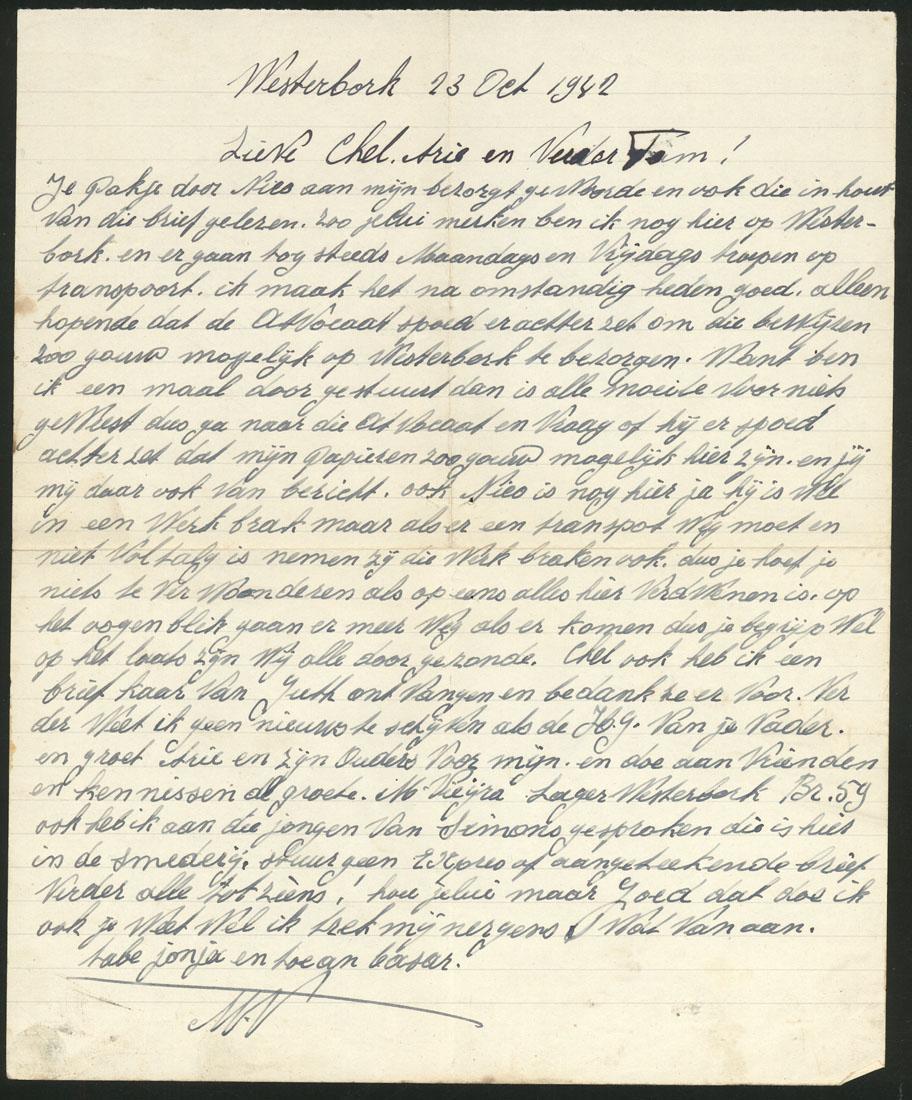 Westerbork 23 Oct 1942
Lieve Chel. Arie en Verder Fam!
Je Pakje door Nico aan mijn bezorgt geWoorde en ook die in hout
Van die brief gelezen. zoo jelui merken ben ik nog hier op Wester-
bork. en er gaan tog steeds Maandags en Vrijdags troepen op
transpoort. ik maak het na omstandig heden goed. alleen
hopende dat de AtVocaat spoed erachter zet om die beWijzen
zoo gouw mogelijk op Westerbork te bezorgen. Want ben
ik een maal door gestuurt dan is alle moeite Voor niets
geWeest dus ga naar die AtVocaat en Vraag of hij er spoed
achter zet dat mijn Papieren zoo gouw mogelijk hier zijn. en jij
mij daar ook Van bericht. ook Nico is nog hier ja hij is Wel
in een Werk brak maar als er een transpot Weg moet en
niet Voltalig is nemen zij die Werk braken ook. dus je hoef je
niets te Ver Wonderen als op eens alles hier VerdWenen is. op
het oogenblik gaan er meer Weg als er komen dus je begrijp Wel
op het laats zijn Wij alle door gezonde. Chel ook heb ik een
brief kaar Van Juth ont Vangen en bedank ze er Voor. Ver
der Weet ik geen nieuws te schijVen als de Van je Vader.
en groet Arie en zijn Ouders Voor mijn. en doe aan Vrienden
en kennissen de groete. M Vieyra Lager Westerbork Br. 59
ook heb ik aan die jongen Van Simons gesproken die is hier
in de smederij. stuur geen EXpres of aangeteekende brief
Verder alle tot ziens! hou jelui maar Goed dat doe ik
ook je Weet Wel ik trek mij nergens Wat Van aan.
tabe jonja en toean basar.
M.V